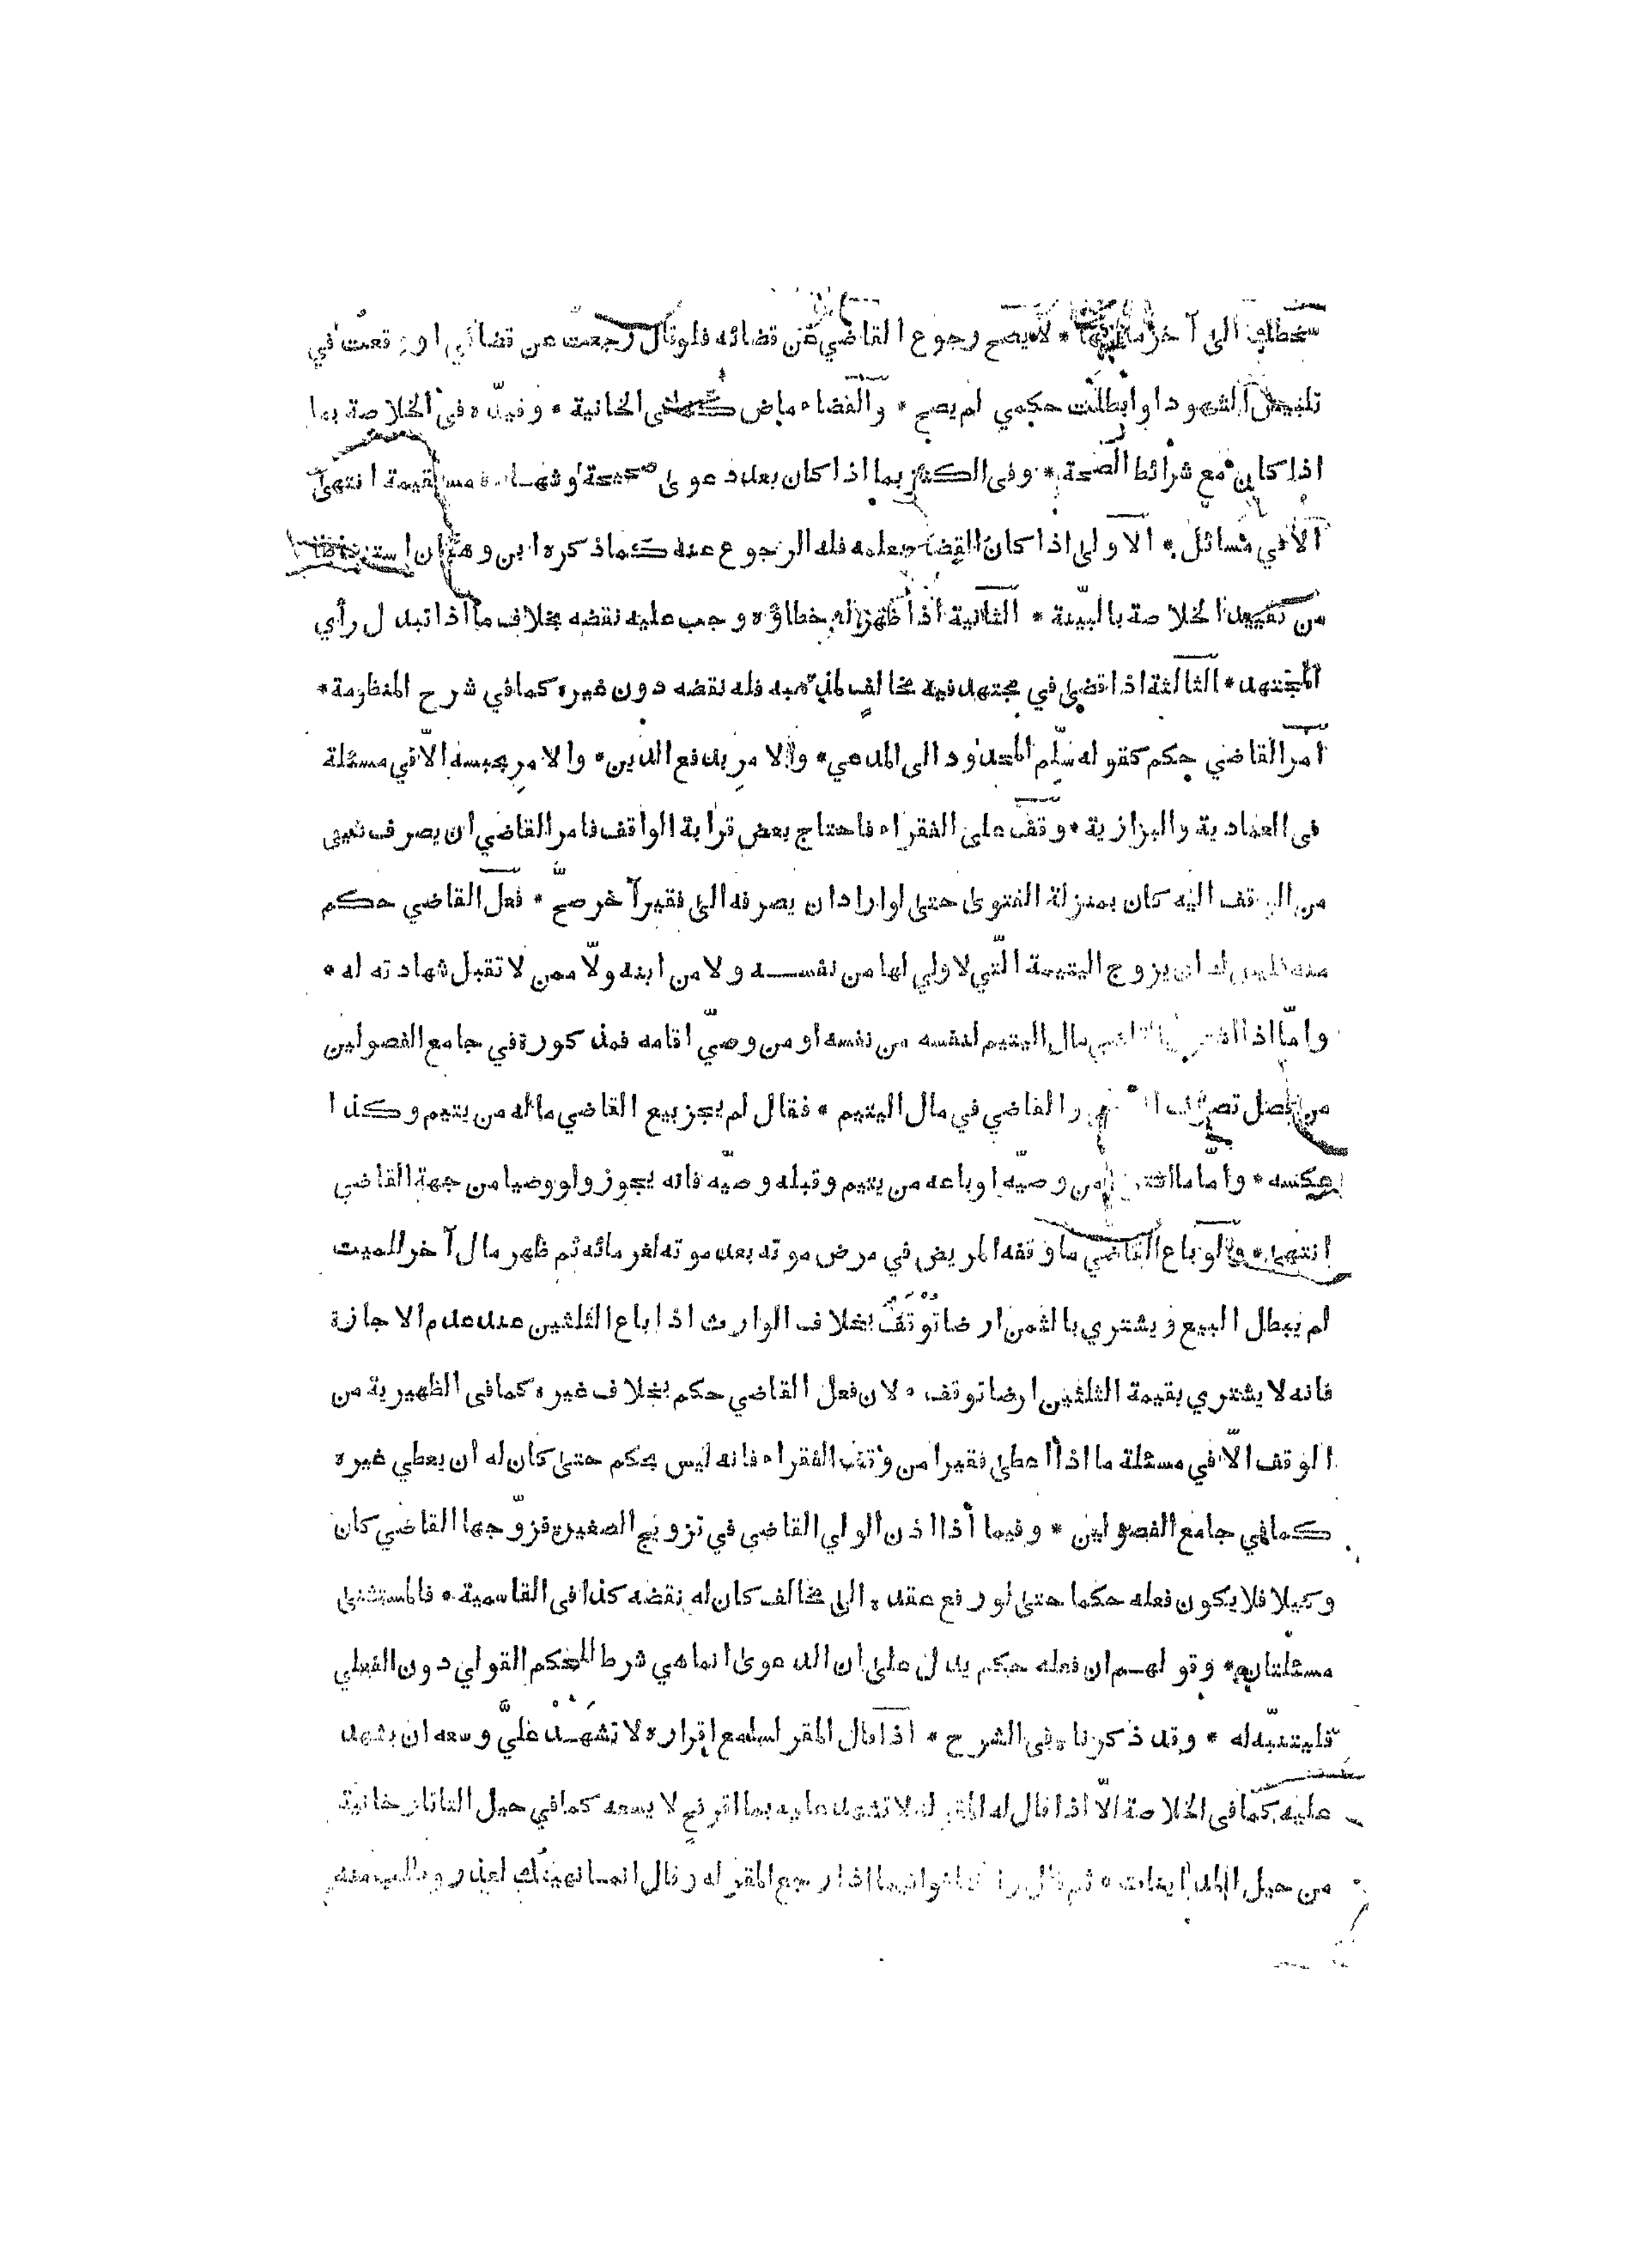 الى آخر ما فيها * لا يصح رجوع القاضي عن قضائه فلو قال رجعت عن قضائي او وقعت في
تلبيس الشهود او ابطلت حكمي لم يصح * والقضاء ماض كما فى الخانية * وقيّده فى الخلاصة بما
اذا كان مع شرائط الصحة * وفى الكنز بما اذا كان بعد دعوى صحيحة وشهادة مستقيمة انتهى
الّا في مسائل * الاولى اذا كان القضاء بعلمه فله الرجوع عنه كما ذكره ابن وهبان استنباطا
من تقييد الخلاصة بالبيّنة * الثانية اذا ظهر له خطاؤه وجب عليه نقضه بخلاف ما اذا تبدل رأي
المجتهد * الثالثة اذا قضى في مجتهد فيه مخالف لمذهبه فله نقضه دون غيره كما في شرح المنظومة *
امر القاضي حكم كقوله سلّم المحدود الى المدعي * والامر بدفع الدين * والامر بحبسه الّا في مسئلة
فى العمادية والبزازية * وقف على الفقراء فاحتاج بعض قرابة الواقف فامر القاضي ان يصرف شيئ
من الوقف اليه كان بمنزلة الفتوى حتى لو اراد ان يصرفه الى فقير آخر صحّ * فعل القاضي حكم
منه فليس له ان يزوج اليتيمة الّتي لا ولي لها من نفسه ولا من ابنه ولّا ممن لا تقبل شهادته له *
وامّا اذا اشترى القاضي مال اليتيم لنفسه من نفسه او من وصيّ اقامه فمذكورة في جامع الفصولين
من فصل تصرّف القاضي في مال اليتيم * فقال لم يجز بيع القاضي ماله من يتيم وكذا
عكسه * وامّا ما اشترى من وصيّه او باعه من يتيم وقبله وصيّه فانه يجوز ولو وصيا من جهة القاضي
انتهى * ولو باع القاضي ما وقفه المريض في مرض موته بعد موته لغرمائه ثم ظهر مال آخر للميت
لم يبطل البيع ويشتري بالثمن ارضا تُوْقَفُ بخلاف الوارث اذا باع الثلثين عند عدم الاجازة
فانه لا يشتري بقيمة الثلثين ارضا توقف * لان فعل القاضي حكم بخلاف غيره كما فى الظهيرية من
الوقف الّا في مسئلة ما اذا اعطى فقيرا من وقف الفقراء فانه ليس بحكم حتى كان له ان يعطي غيره
كما في جامع الفصولين * وفيما اذا اذن الولي القاضي في تزويج الصغيرة فزوّجها القاضي كان
وكيلا فلا يكون فعله حكما حتى لو رفع عقده الى مخالف كان له نقضه كذا فى القاسمية * فالمستثنى
مسئلتان * وقولهم ان فعله حكم يدل على ان الدعوى انما هي شرط للحكم القولي دون الفعلي
فليتنبّه له * وقد ذكرناه فى الشرح * اذا قال المقر لسامع اقراره لا تشهَدْ عليّ وسعه ان يشهد
عليه كما فى الخلاصة الّا اذا قال له المقر له لا تشهد عليه بما اقر فح لا يسعه كما في حيل التاتارخانية
من حيل المداينات * ثم قال اذا رجع المقر له وقال انما نهيتك لعذر وطلب منه